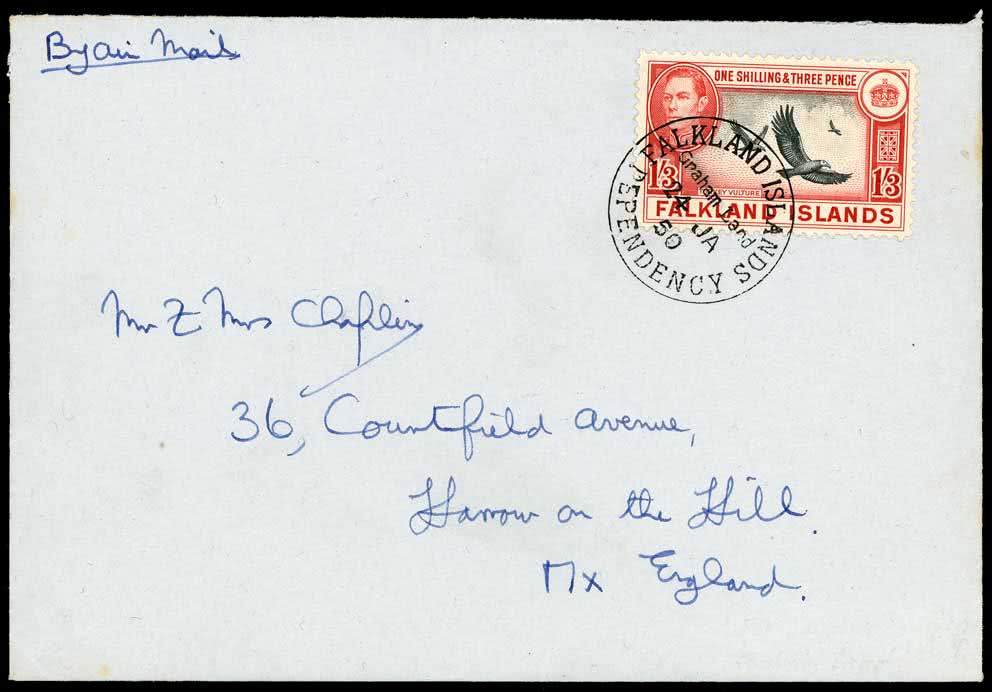 By Air Mail
ONE SHILLING & THREE PENCE
1/3 1/3
VULTURE
FALKLAND ISLANDS
FALKLAND ISLANDS
Graham Land
24 JA
50
DEPENDENCY
Mr & Mrs Chaplin
36, Courtfield Avenue,
Harrow on the Hill.
Mx England.